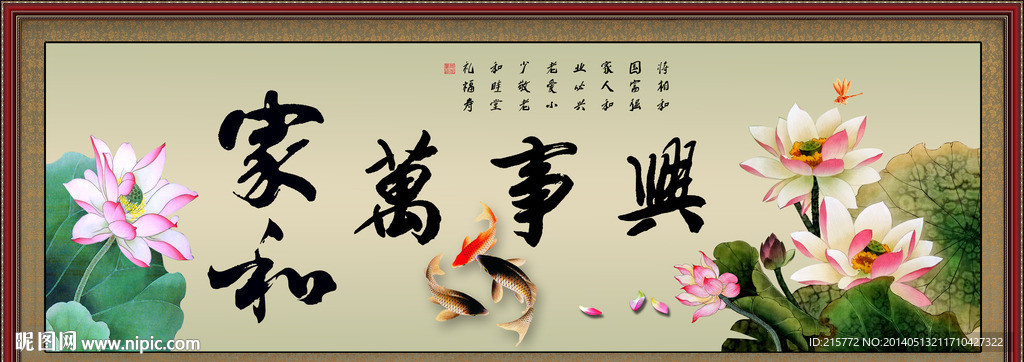 家和萬事興
将相和
国富强
家人和
业必兴
老爱小
少敬老
和睦堂
礼福寿
昵图网 www.nipic.com
ID:215772 NO:20140513211710427322